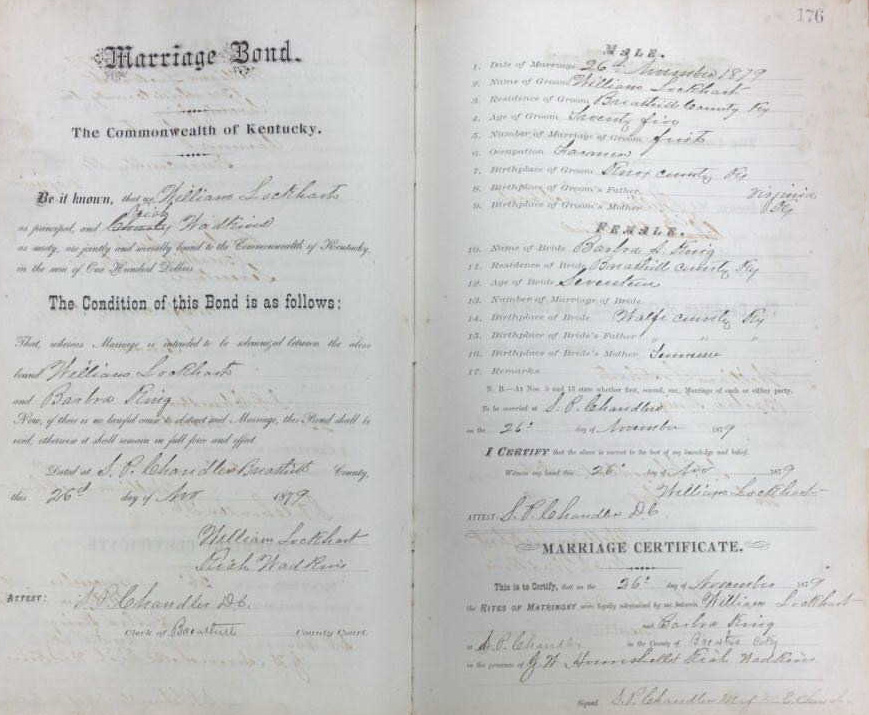 Marriage Bond.
The Commonwealth of Kentucky.
Be it known, that we William Lockhart
Rich
as principal, and Charly Wadkins
as surety, are jointly and severally bound to the Commonwealth of Kentucky,
in the sum of One Hundred Dollars.
The Condition of this Bond is as follows:
That, whereas Marriage is intended to be solemnized between the above
bound William Lockhart
and Barbra King
Now, if there is no lawful cause to obstruct said Marriage, this Bond shall be
void, otherwise it shall remain in full force and effect.
Dated at S. P. Chandlers Breathitt County,
this 26d day of Nov 1879
William Lockhart
Rich Wadkins
ATTEST: S. P. Chandler D C
Clerk of Breathitt County Court.
176
MALE.
1. Date of Marriage 26d November 1879
2. Name of Groom William Lockhart
3. Residence of Groom Breathitt County Ky
4. Age of Groom Twenty five
5. Number of Marriage of Groom first
6. Occupation Farmer
7. Birthplace of Groom Knox county Ky
8. Birthplace of Groom's Father Virginia
9. Birthplace of Groom's Mother Ky
FEMALE.
10. Name of Bride Barbra A. King
11. Residence of Bride Breathitt county Ky
12. Age of Bride Seventeen
13. Number of Marriage of Bride
14. Birthplace of Bride Wolfe county Ky
15. Birthplace of Bride's Father " " "
16. Birthplace of Bride's Mother
17. Remarks
N. B.—At Nos. 5 and 13 state whether first, second, etc., Marriage of each or either party.
To be married at S. P. Chandlers
on the 26' day of November 1879
I CERTIFY that the above is correct to the best of my knowledge and belief.
Witness my hand this 26' day of Nov 1879
William Lockhart
ATTEST S. P. Chandler D C
MARRIAGE CERTIFICATE.
This is to Certify, that on the 26' day of November 1879
the RITES OF MATRIMONY were legally solemnized by me between William Lockhart
and Barbra King
at S. P. Chandler in the County of
in the presence of G W Rich Wadkins
Signed S. P. Chandler